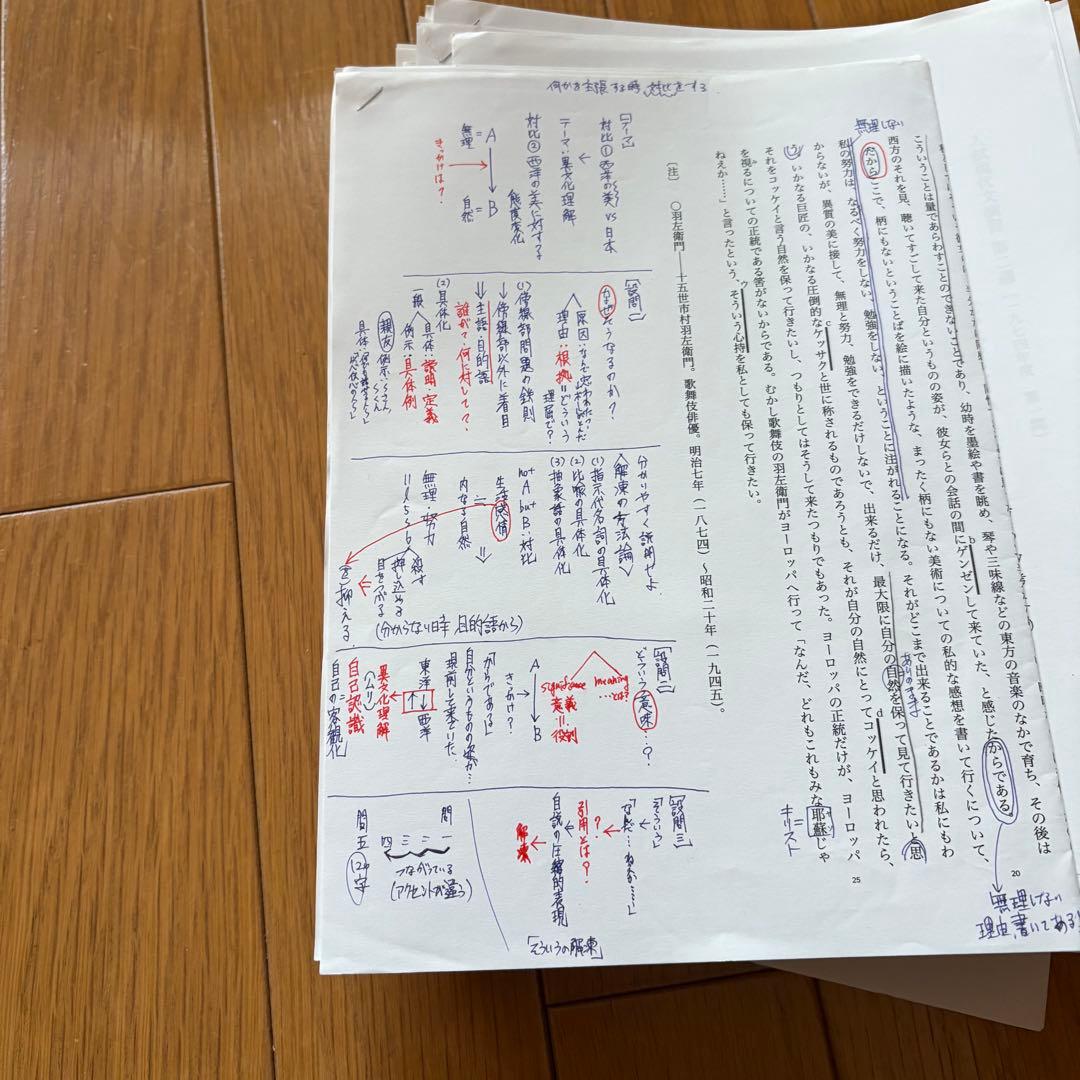 何かを主張する時 対比をする
こういうことは量であらわすことのできないことであり、幼時を墨絵や書を眺め、琴や三味線などの東方の音楽のなかで育ち、その後は
西方のそれを見、聴いてすごして来た自分というものの姿が、彼女らとの会話の間にゲンゼンして来ていた、と感じたからである。
b
20
無理しない
だからここで、柄にもないということばを絵に描いたような、まったく柄にもない美術についての私的な感想を書いて行くについて、
私の努力は、なるべく努力をしない、勉強をしない、ということに注がれることになる。それがどこまで出来ることであるかは私にもわ
からないが、異質の美に接して、無理と努力、勉強をできるだけしないで、出来るだけ、最大限に自分の自然を保って見て行きたいと思
ありのまま
う。いかなる巨匠の、いかなる圧倒的なケッサクと世に称されるものであろうとも、それが自分の自然にとってコッケイと思われたら、
c
d
それをコッケイと言う自然を保って行きたいし、つもりとしてはそうして来たつもりでもあった。ヨーロッパの正統だけが、ヨーロッパ
を視るについての正統である筈がないからである。むかし歌舞伎の羽左衛門がヨーロッパへ行って「なんだ、どれもこれもみな耶蘇じゃ
ヤソ
25
ねえか……」と言ったという、そういう心持を私としても保って行きたい。
ウ
=キリスト
無理しない
理由書いてある
〔注〕 ○羽左衛門――十五世市村羽左衛門。歌舞伎俳優。明治七年（一八七四）～昭和二十年（一九四五）。
[テーマ]
対比① 西洋の美 vs 日本
テーマ:異文化理解
対比② 西洋の美に対する
態度変化
無理=A
自然=B
きっかけは?
[設問一]
なぜそうなるのか?
原因:
理由:根拠=どういう
理屈で?
(1) 傍線部問題の鉄則
↓傍線部以外に着目
⇓主語・目的語
誰が?・何に対して?
(2) 具体化
一般
具体:説明・定義
例示:具体例
分かりやすく説明せよ.
<解凍の方法論>
(1) 指示代名詞の具体化
(2) 比喩の具体化
(3) 抽象語の具体化
not A but B:対比
感情
内なる自然
無理・努力
殺す
押し込める
目をつぶる
を抑える
(分からない時 目的語から)
[設問二]
どういう意味…?
meaning
…とは?
significance
意義
=役割
A
B
きっかけ?
「からである」
自分というものの姿が…
現前して来ていた.
東洋 西洋
異文化理解
自己認識
自己の客観化
[設問三]
「そういう」
「なんだ…ねえか……」
?
引用とは?
自説の圧縮的表現
解凍
「そういうの解凍」
問一
二
三
四
つながっている
(アクセントが違う)
問五
120字